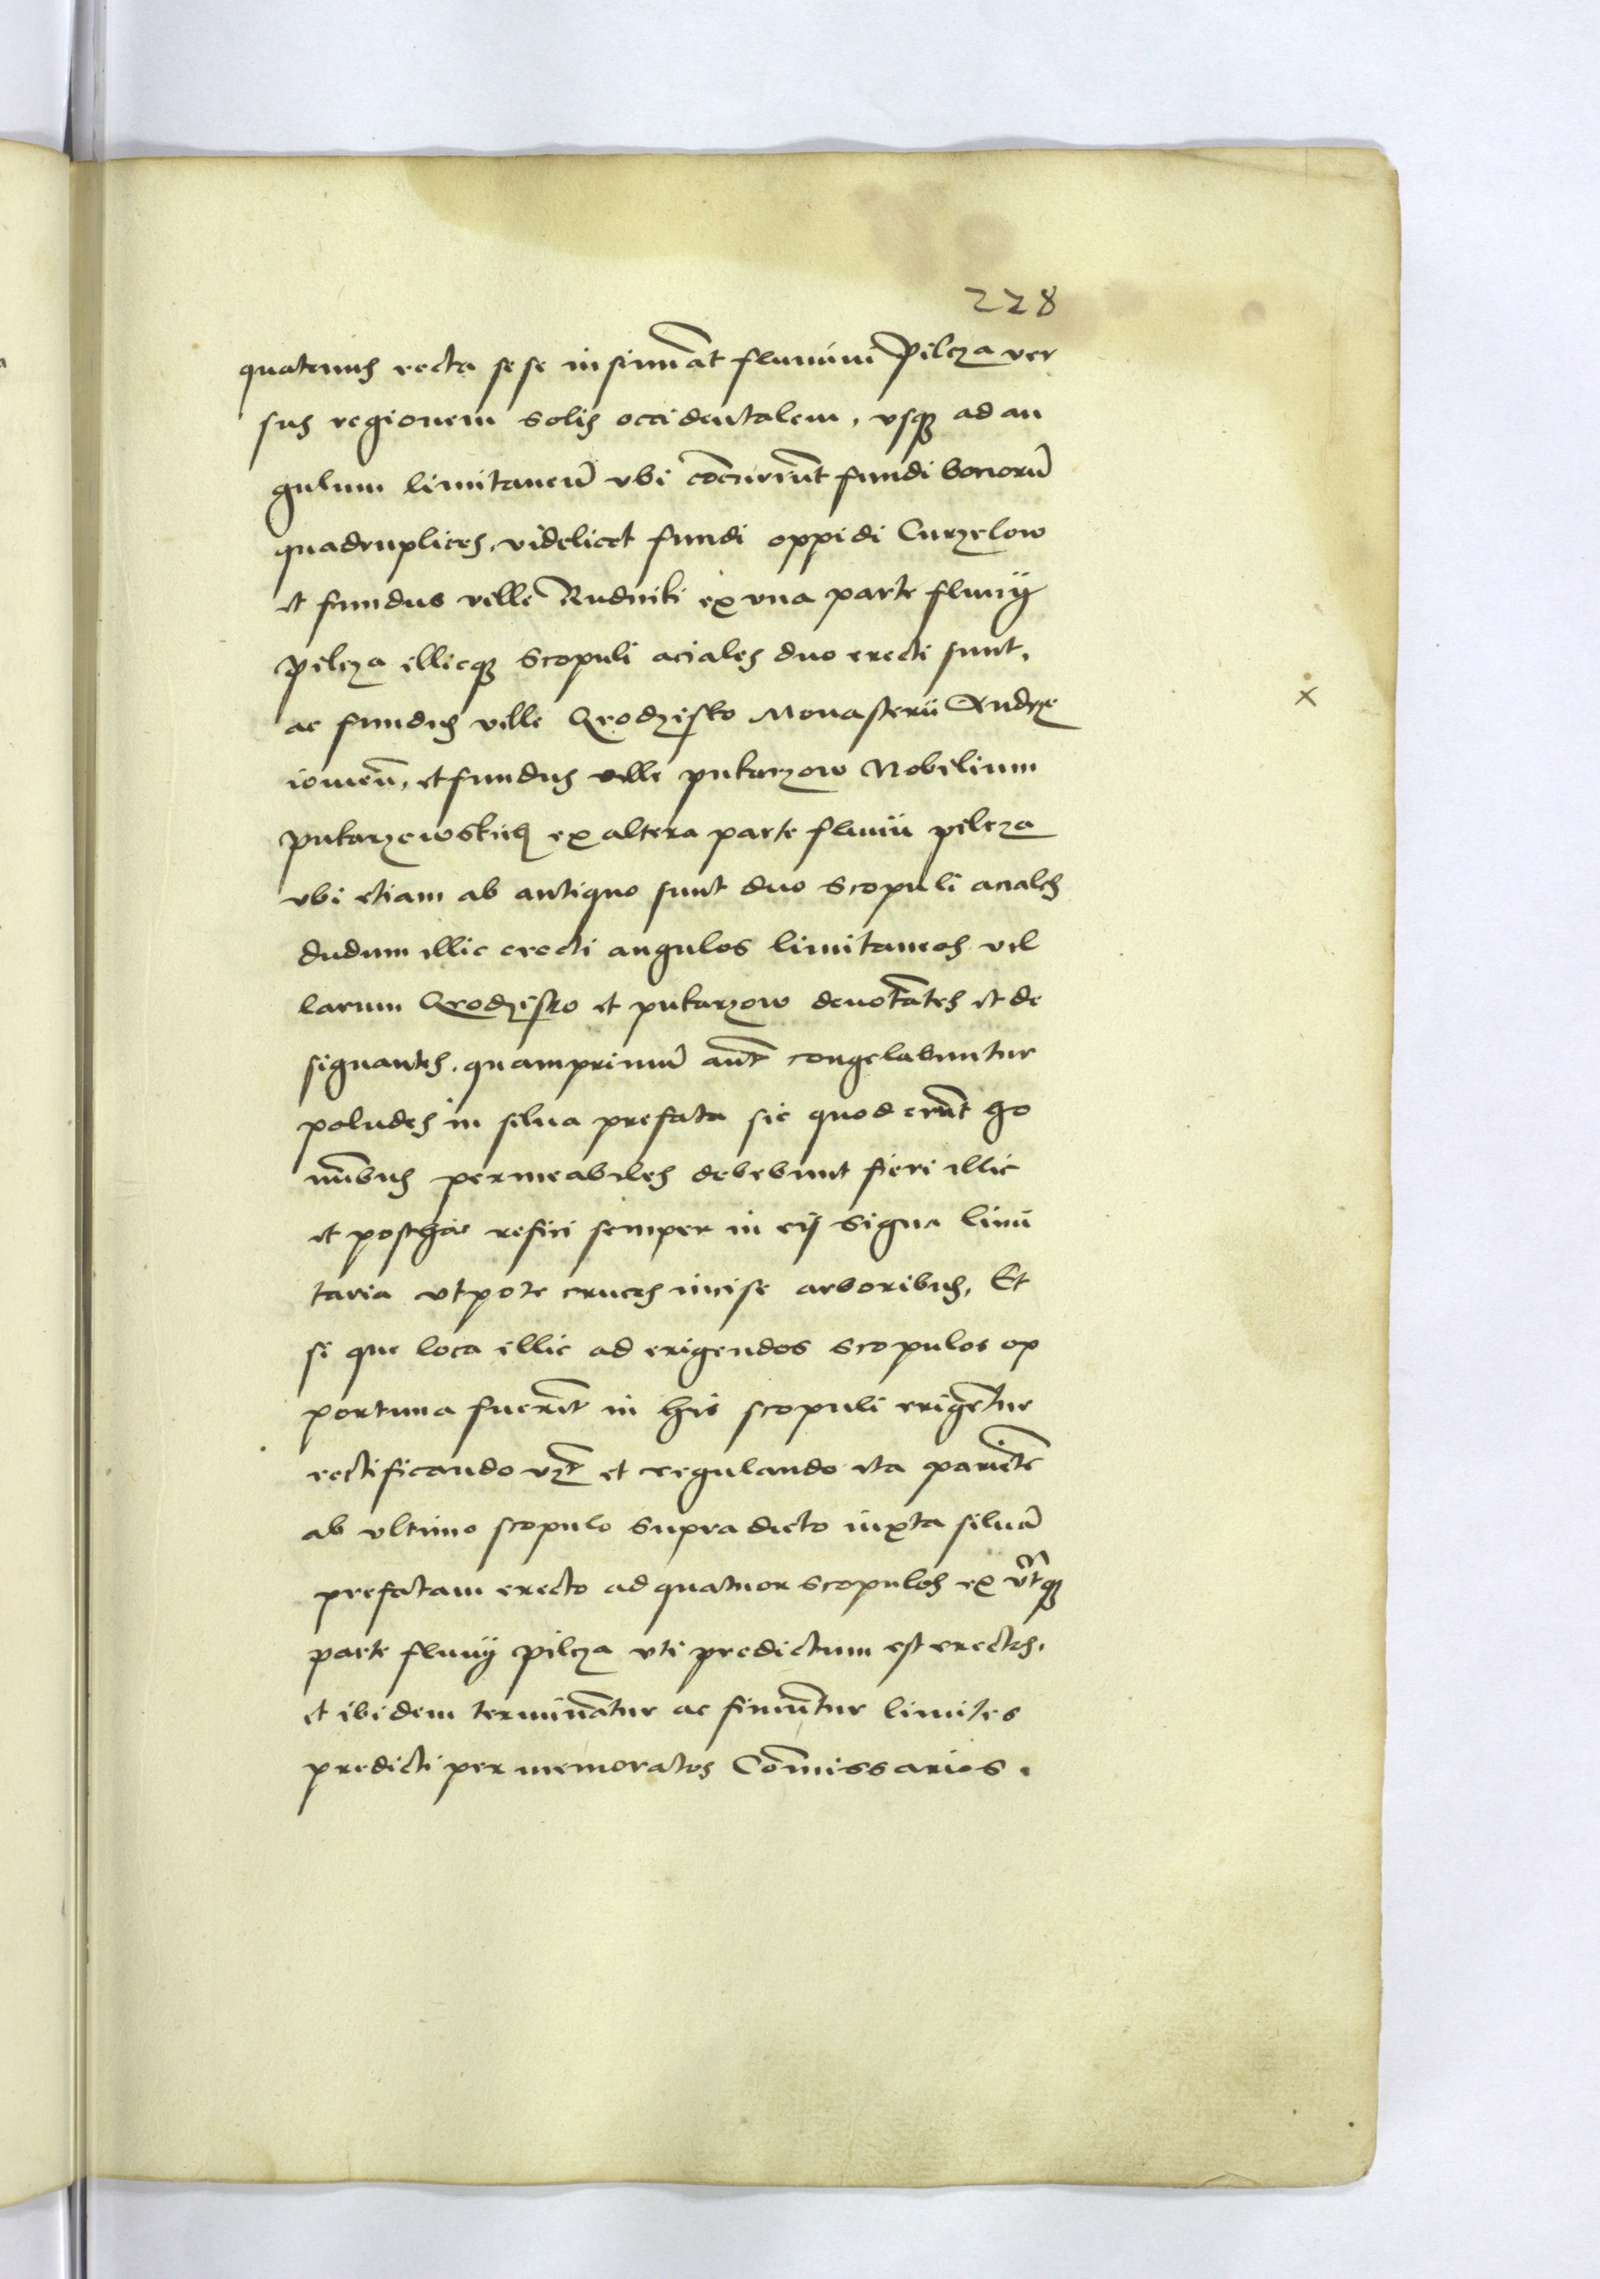 228
quatenus recta sese insinuāt fluuium Pilcza ver
sus regionem solis occidentalem, vsqȝ ad an
gulum limitaneū vbi cōcurrūt fundi bonorū
quadruplices, videlicet fundi oppidi Curzelow
et fundus ville Rudniki ex vna parte fluuÿ
Pilcza illicqȝ scopuli aciales duo erecti sunt,
ac fundus ville Grodzisko Monasterii Andrze
iouieñ, et fundus ville pukarzow Nobilium
pukarzewskich ex altera parte fluuii pilcza
vbi etiam ab antiquo sunt duo scopuli aciales
dudum illic erecti angulos limitaneos vil
larum Grodzisko et pukarzow denotātes et de
signantes, quamprimū aūt congelabuntur
paludes in silua prefata sic quod erūt ho
mībus permeabiles debebunt fieri illic
et posthac refici semper in eis signa limi
taria vtpote cruces incise arboribus, Et
si que loca illic ad erigendos scopulos op
portuna fuerīt in his scopuli erigētur
rectificando vȝt et regulando ita parietē
ab vltimo scopulo supradicto iuxta siluā
prefatam erecto ad quatuor scopulos ex vtrqȝ
parte fluuÿ Pilcza vti predictum est erectos,
et ibidem terminātur ac finiūtur limites
predicti per memoratos Cōmissarios.
x